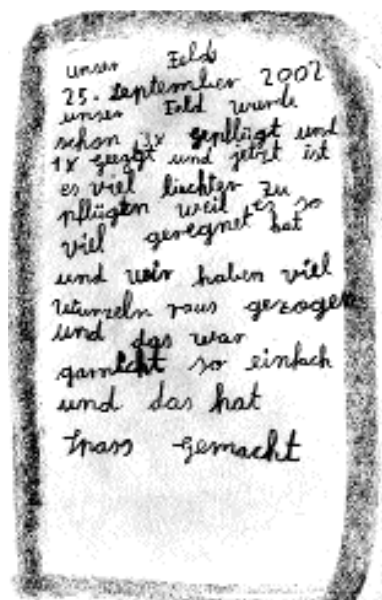 unser Feld
25. September 2002
unser Feld wurde
schon 3x gepflügt und
1x geeggt und jetzt ist
es viel liechter zu
pflügten weil es so
viel geregnet hat
und wir haben viel
Wurzeln raus gezogen
und das war
garnicht so einfach
und das hat
Spass gemacht